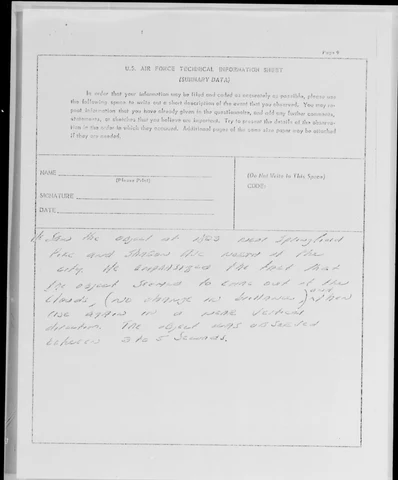 Page 9
U.S. AIR FORCE TECHNICAL INFORMATION SHEET
(SUMMARY DATA)
In order that your information may be filed and coded as accurately as possible, please use
the following space to write out a short description of the event that you observed. You may re-
peat information that you have already given in the questionnaire, and add any further comments,
statements, or sketches that you believe are important. Try to present the details of the observa-
tion in the order in which they occurred. Additional pages of the same size paper may be attached
if they are needed.
NAME
(Please Print)
SIGNATURE
DATE
(Do Not Write in This Space)
CODE:
Saw the object at near Springfield
Pike and Ave west of the
city. He emphasized the fact that
the object seemed to come out of the
clouds, (no change in ) and then
rise again in a near vertical
direction. The object was observed
between 3 to 5 seconds.